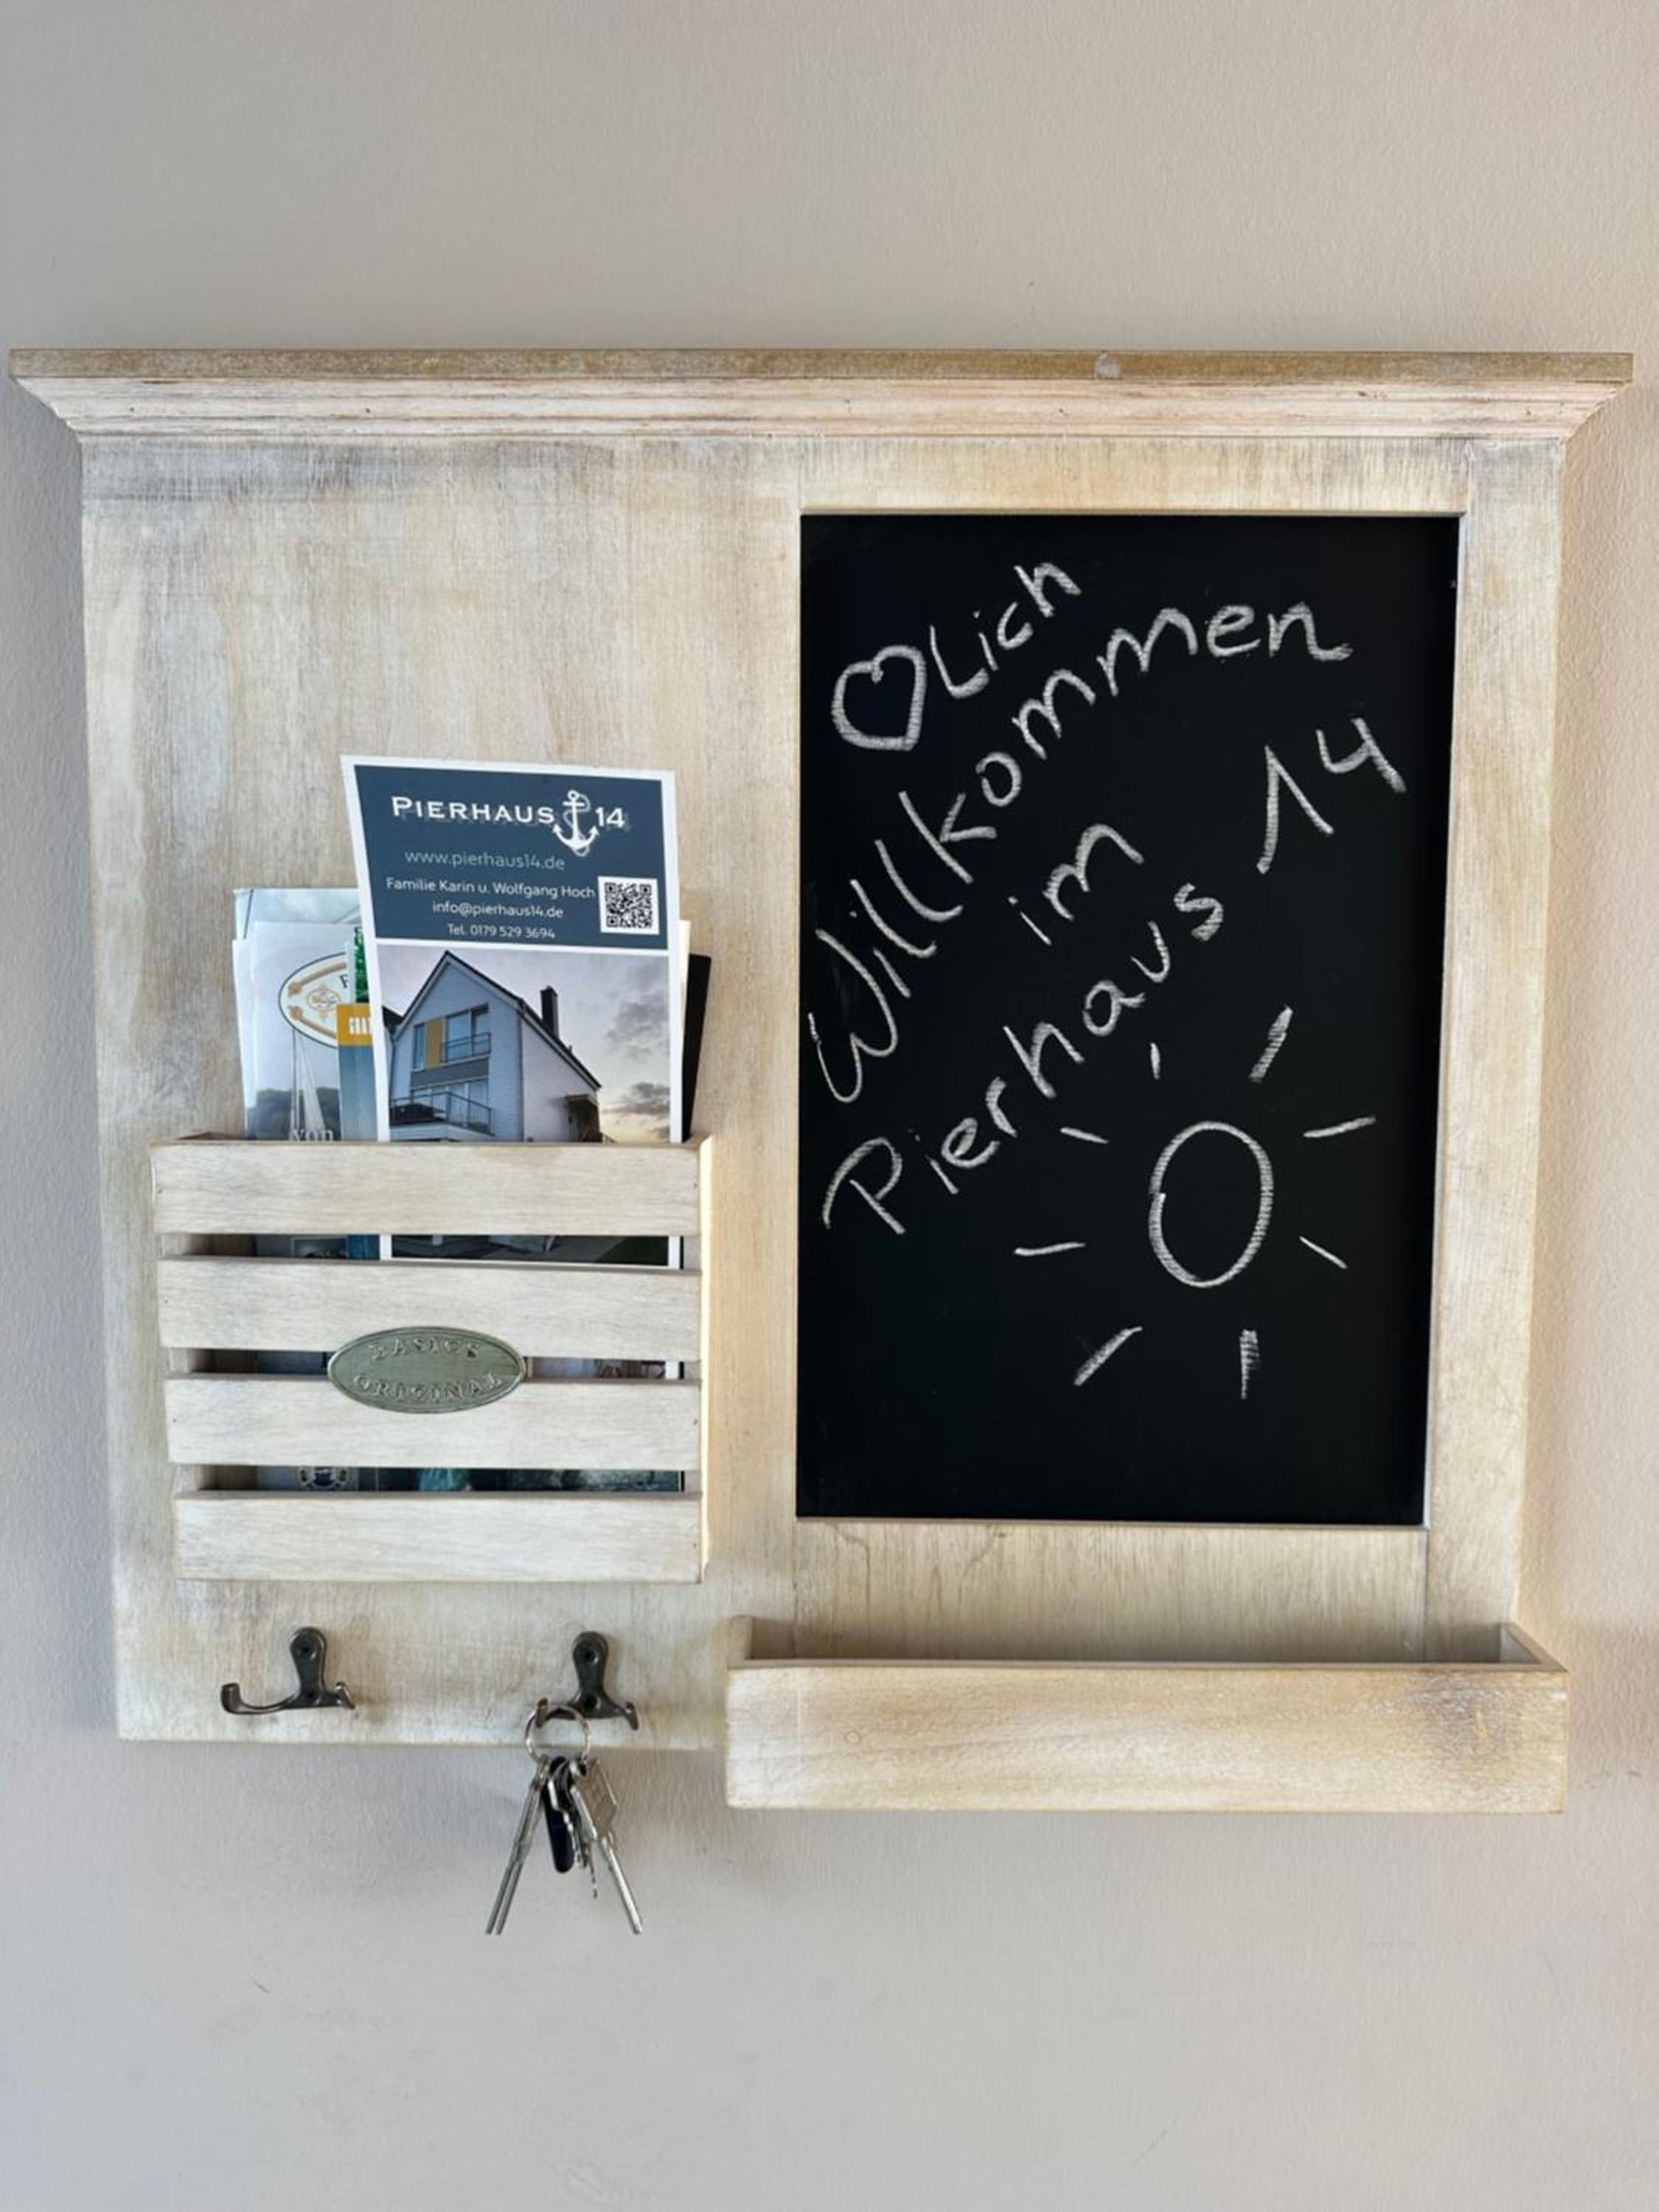 PIERHAUS 14
www.pierhaus14.de
Familie Karin u. Wolfgang Hoch
info@pierhaus14.de
Tel. 0179 529 3694
von
BASICS
ORIGINAL
♡Lich
Willkommen
im
Pierhaus 14